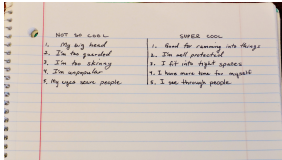 NOT SO COOL
1. My big head
2. I'm too guarded
3. I'm too skinny
4. I'm unpopular
5. My eyes scare people
SUPER COOL
1. Good for ramming into things
2. I'm well protected
3. I fit into tight spaces
4. I have more time for myself
5. I see through people